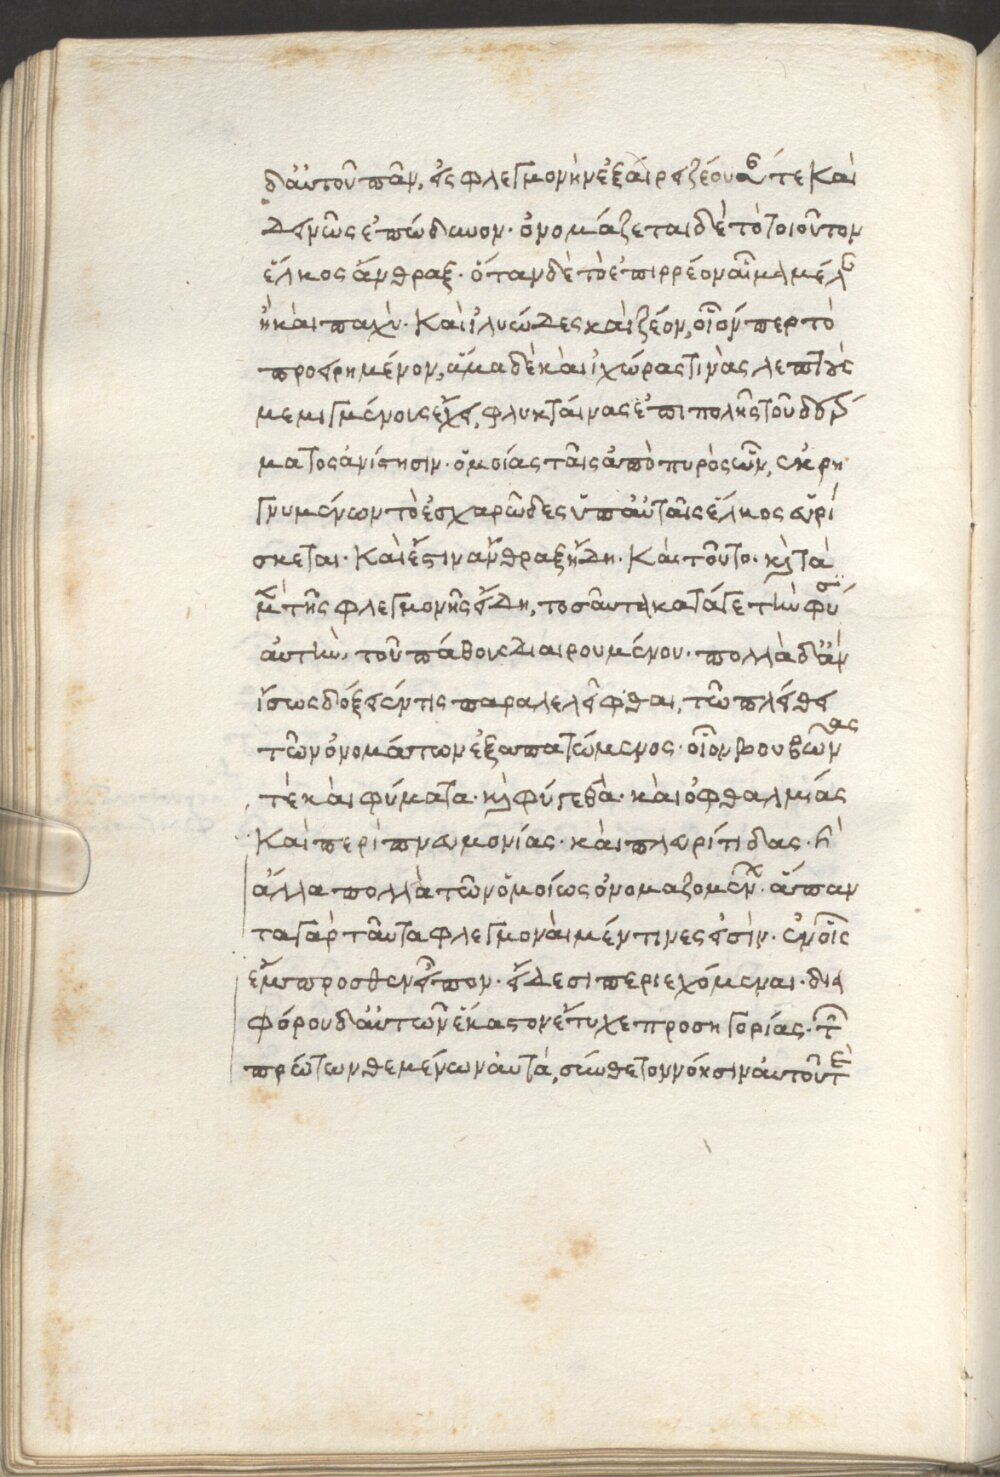 δ' αὐτοῦ πᾶν, εἰς φλεγμονὴν ἐξαίρει ζέουσάν τε καὶ
δεινῶς ἐπώδυνον· ὀνομάζεται δὲ τὸ τοιοῦτον
ἕλκος ἄνθραξ· ὅταν δὲ τὸ ἐπιρρέον αἷμα μέλαν
ἢ καὶ παχὺ· καὶ ἰλυῶδες καὶ ζέον, οἷόν περ τὸ
προειρημένον, ἅμα δὲ καὶ ἰχῶράς τινὰς λεπτοὺς
μεμιγμένους ἔχει, φλυκταίνας ἐπιπολῆς τοῦ δέρ
ματος ἀνίστησιν· ὁμοίας ταῖς ἀπὸ πυρὸς ὧν, ἐκρη
γνυμένων τὸ ἐσχαρῶδες ὑπ' αὐταῖς ἕλκος εὑρί
σκεται· καὶ ἔστιν ἄνθραξ ἤδη· καὶ τοῦτο· καὶ τὰ
μὲν τῆς φλεγμονῆς εἴδη, τοσαῦτα κατά γε τὴν φύσιν
αὐτὴν τοῦ πάθους διαιρουμένου· πολλὰ δ' ἂν
ἴσως δόξειέν τις παραλελεῖφθαι, τῶ πλήθει
τῶν ὀνομάτων ἐξαπατώμενος· οἷον βουβῶνας
τὲ καὶ φύματα· καὶ φύγεθλα· καὶ ὀφθαλμίας
καὶ περιπνευμονίας· καὶ πλευρίτιδας· καὶ
ἄλλα πολλὰ τῶν ὁμοίως ὀνομαζομένων· ἅπαν
τα γὰρ ταῦτα φλεγμοναὶ μέν τινες εἰσὶν· ἐν οἷς
ἔμπροσθεν εἶπον· εἴδεσι περιεχόμεναι· δια
φόρου δ' αὐτῶν ἕκαστον ἔτυχε προσηγορίας·
πρώτων θεμένων αὐτά, σύνθετον νόησιν αὐτοῦ τε